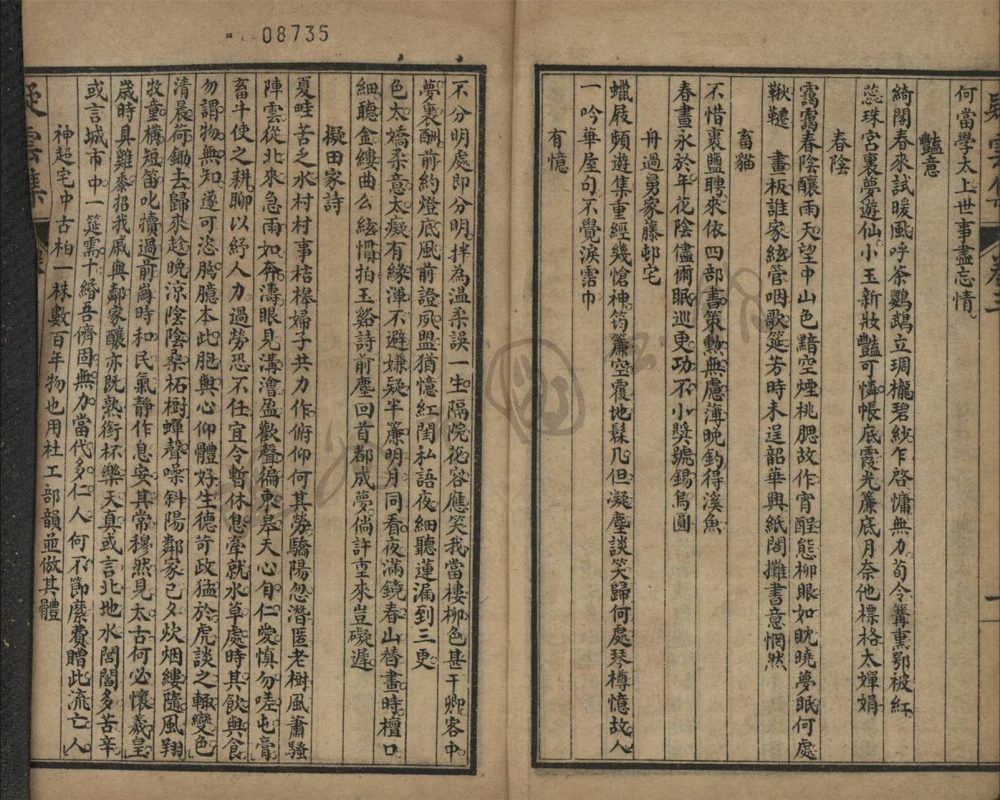 08735
何當學太上世事盡忘情
豔意
綺閣春來試暖風呼茶鸚鵡立琱櫳碧紗乍啓慵無力荀令篝熏鄂被紅
蕊珠宮裏夢遊仙小玉新妝豔可憐帳底霞光簾底月奈他標格太嬋娟
春陰
靄靄春陰釀雨天望中山色黯空煙桃腮故作宵酲態柳眼如眈曉夢眠何處
鞦韆畫板誰家絃管咽歌筵芳時未逞韶華興紙閣攤書意惘然
畜猫
不惜裹鹽聘來依四部書策勲無慮薄晚釣得溪魚
春晝永於年花陰儘爾眠巡更功不小奬號錫烏圓
舟過舅家藤邨宅
蠟屐頻遊集重經幾愴神筠簾空覆地髹几但凝塵談笑歸何處琴樽憶故人
一吟華屋句不覺淚霑巾
有憶
不分明處即分明拌為溫柔誤一生隔院花容應笑我當樓柳色甚干卿客中
夢裏酬前約燈底風前證夙盟猶憶紅閨私語夜細聽蓮漏到三更
色太嬌柔意太癡有緣渾不避嫌疑半簾明月同看夜滿鏡春山替畫時檀口
細聽金縷曲么絃慣拍玉谿詩前塵回首都成夢倘許重來豈礙遲
擬田家詩
夏畦苦乏水村村事桔槔婦子共力作俯仰何其勞驕陽忽潛匿老樹風蕭騷
陣雲從北來急雨如奔濤眼見溝澮盈歡聲徧東皋天心自仁愛慎勿嗟屯膏
畜牛使之耕聊以紓人力過勞恐不任宜令暫休息牽就水草處時其飲與食
勿謂物無知遂可恣胸臆本此胞與心仰體好生德苛政猛於虎談之輒變色
清晨荷鋤去歸來趁晚涼陰陰桑柘樹蟬聲噪斜陽鄰家已夕炊烟縷隨風翔
牧童橫短笛叱犢過前崗時和民氣靜作息安其常穆然見太古何必懷羲皇
歲時具雞黍招我戚與鄰家釀亦既熟銜杯樂天真或言北地水閭閻多苦辛
或言城市中一筵需十緡吾儕固無力當代多仁人何不節縻費贈此流亡人
神超宅中古柏一株數百年物也用杜工部韻並倣其體